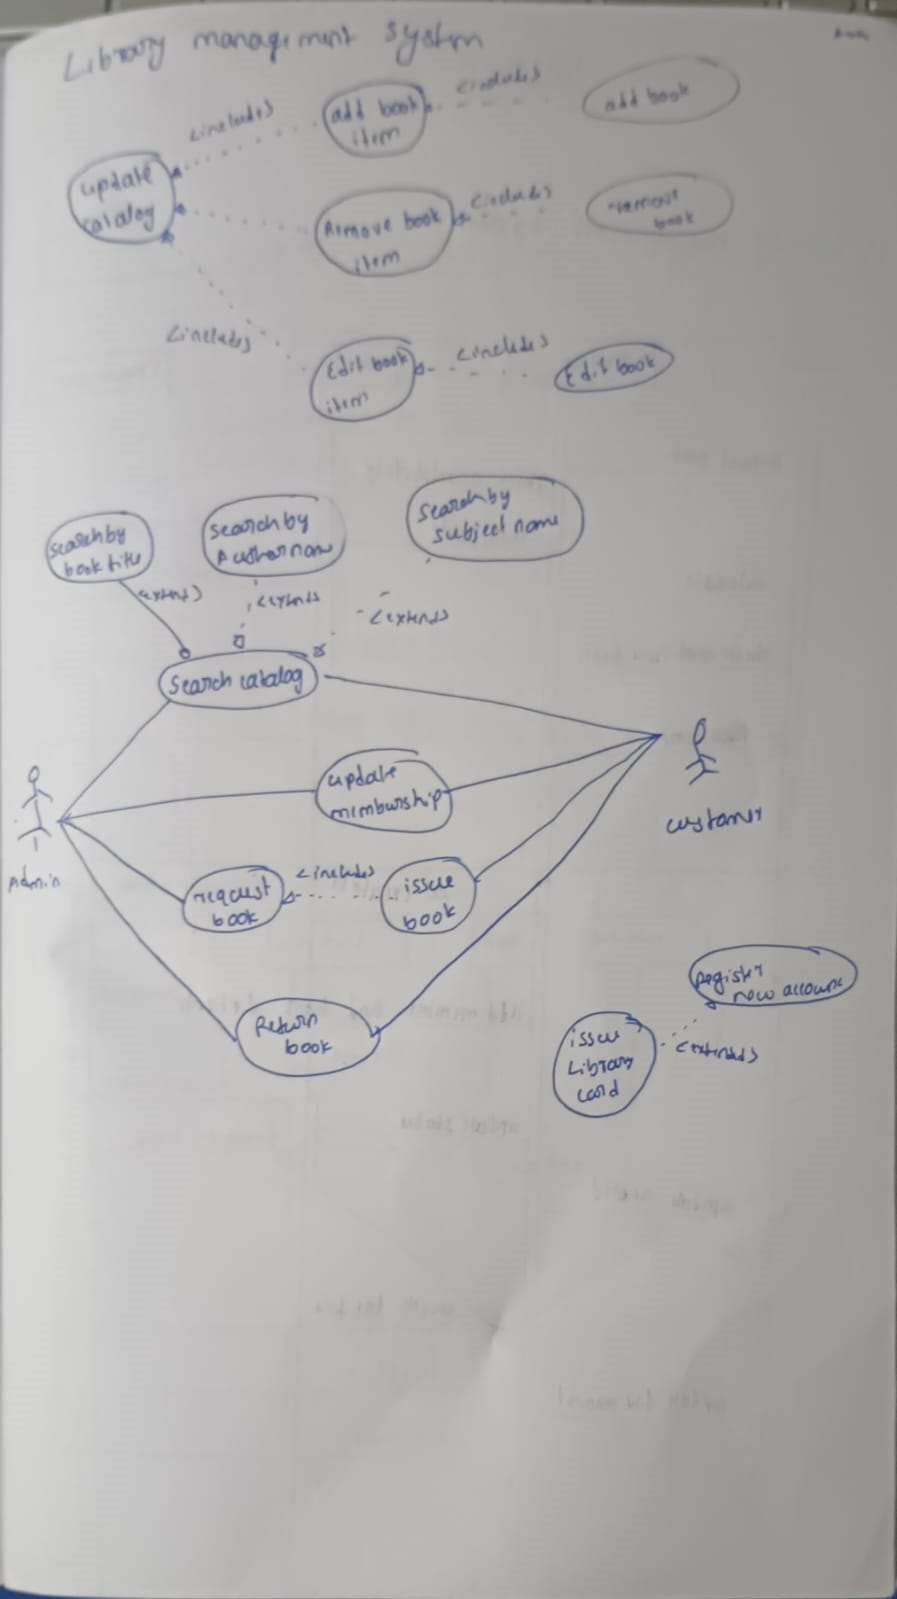 Library management system
<includes)
add book
item
<includes)
add book
update
catalog
Remove book
item
<includes)
remove
book
<includes)
Edit book
item
<includes)
Edit book
search by
book title
search by
Author name
search by
subject name
<extends)
<extends
<extends)
search catalog
update
membership
Admin
customer
request
book
<includes)
issue
book
Return
book
Register
new account
issue
Library
card
<extends)